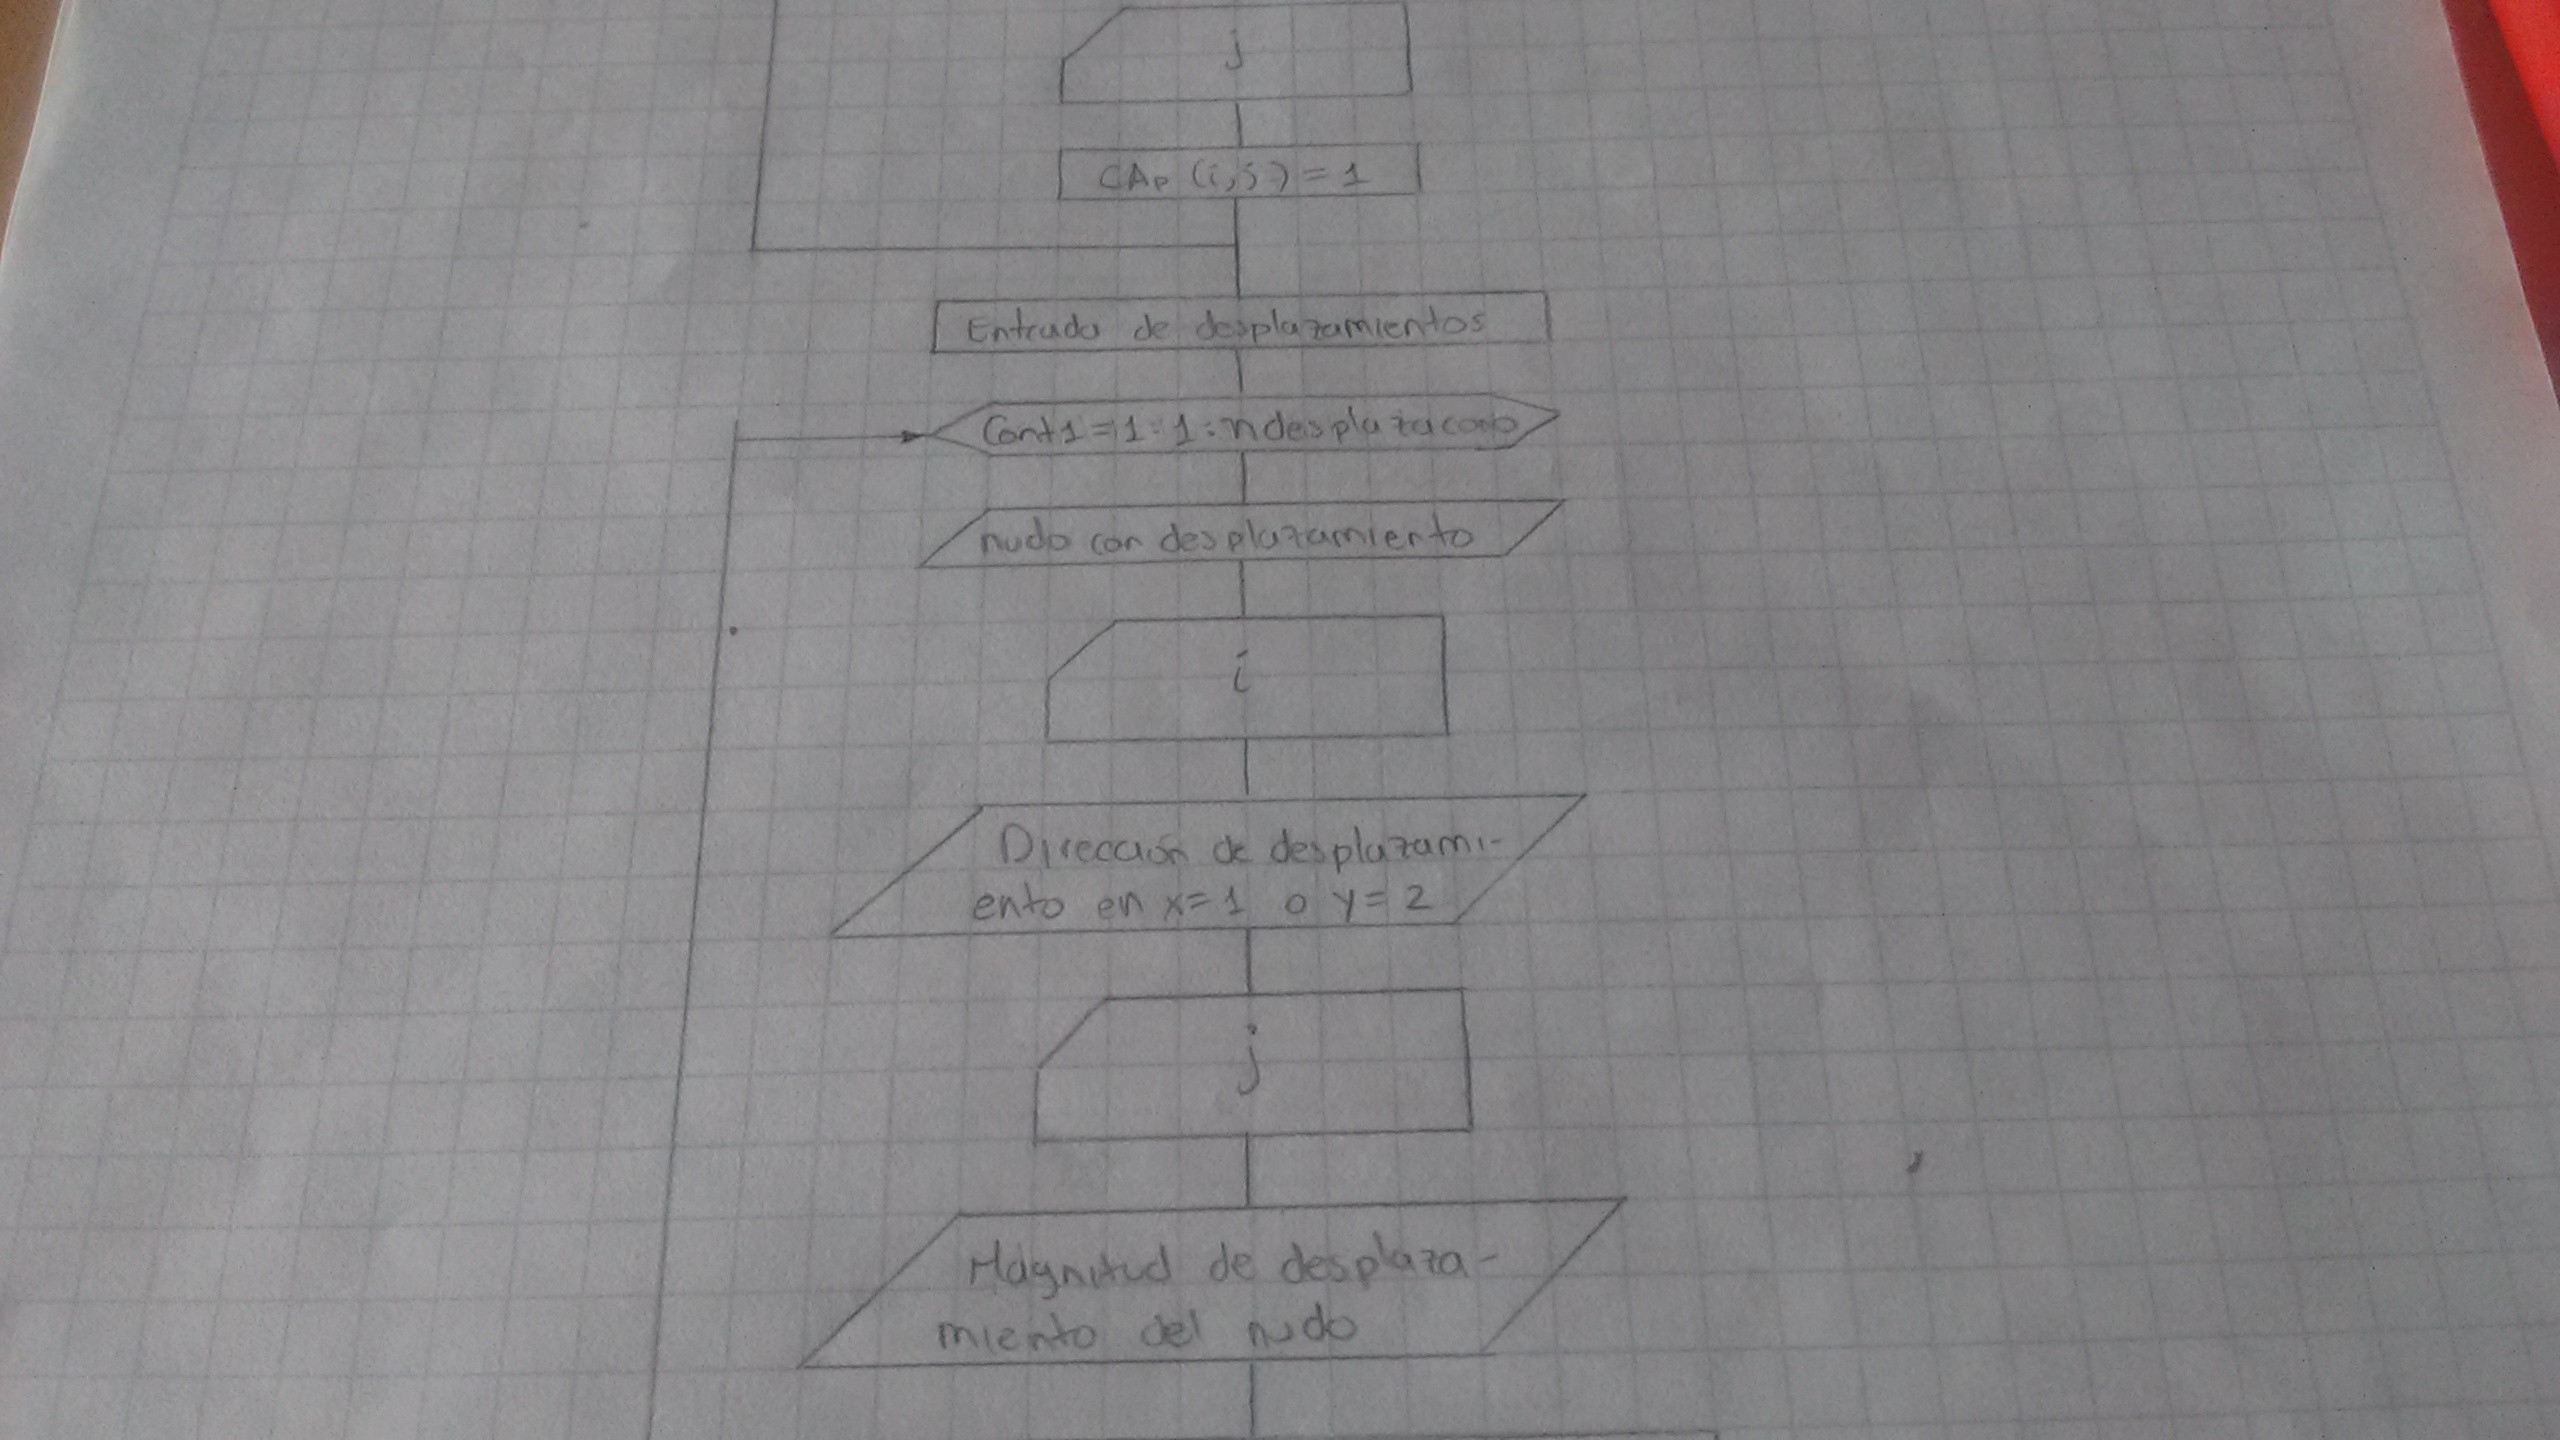 j
CAp (i,j) = 1
Entrada de desplazamientos
Cont1 = 1 : 1 :
nudo con desplazamiento
i
Dirección de desplazami-
ento en x=1 o y=2
j
Magnitud de desplaza-
miento del nudo